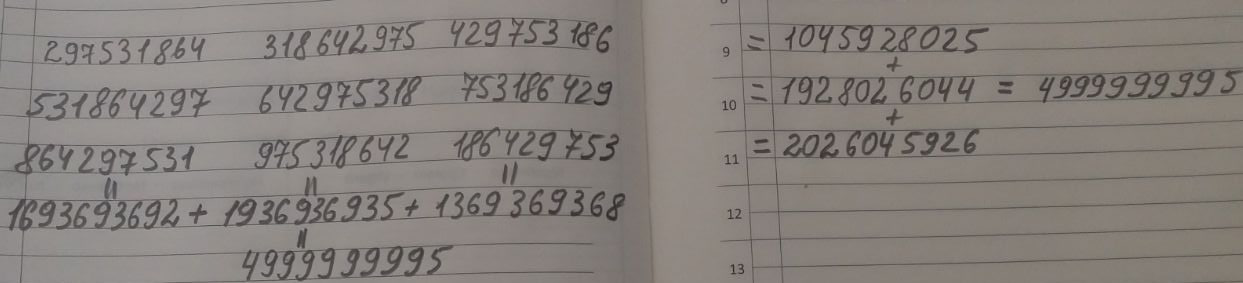 297531864 318642975 429753186
531864297 642975318 753186429
864297531 975318642 186429753
= = =
1693693692 + 1936936935 + 1369369368
=
4999999995
9 = 1045928025
+
10 = 1928026044 = 4999999995
+
11 = 2026045926
12
13